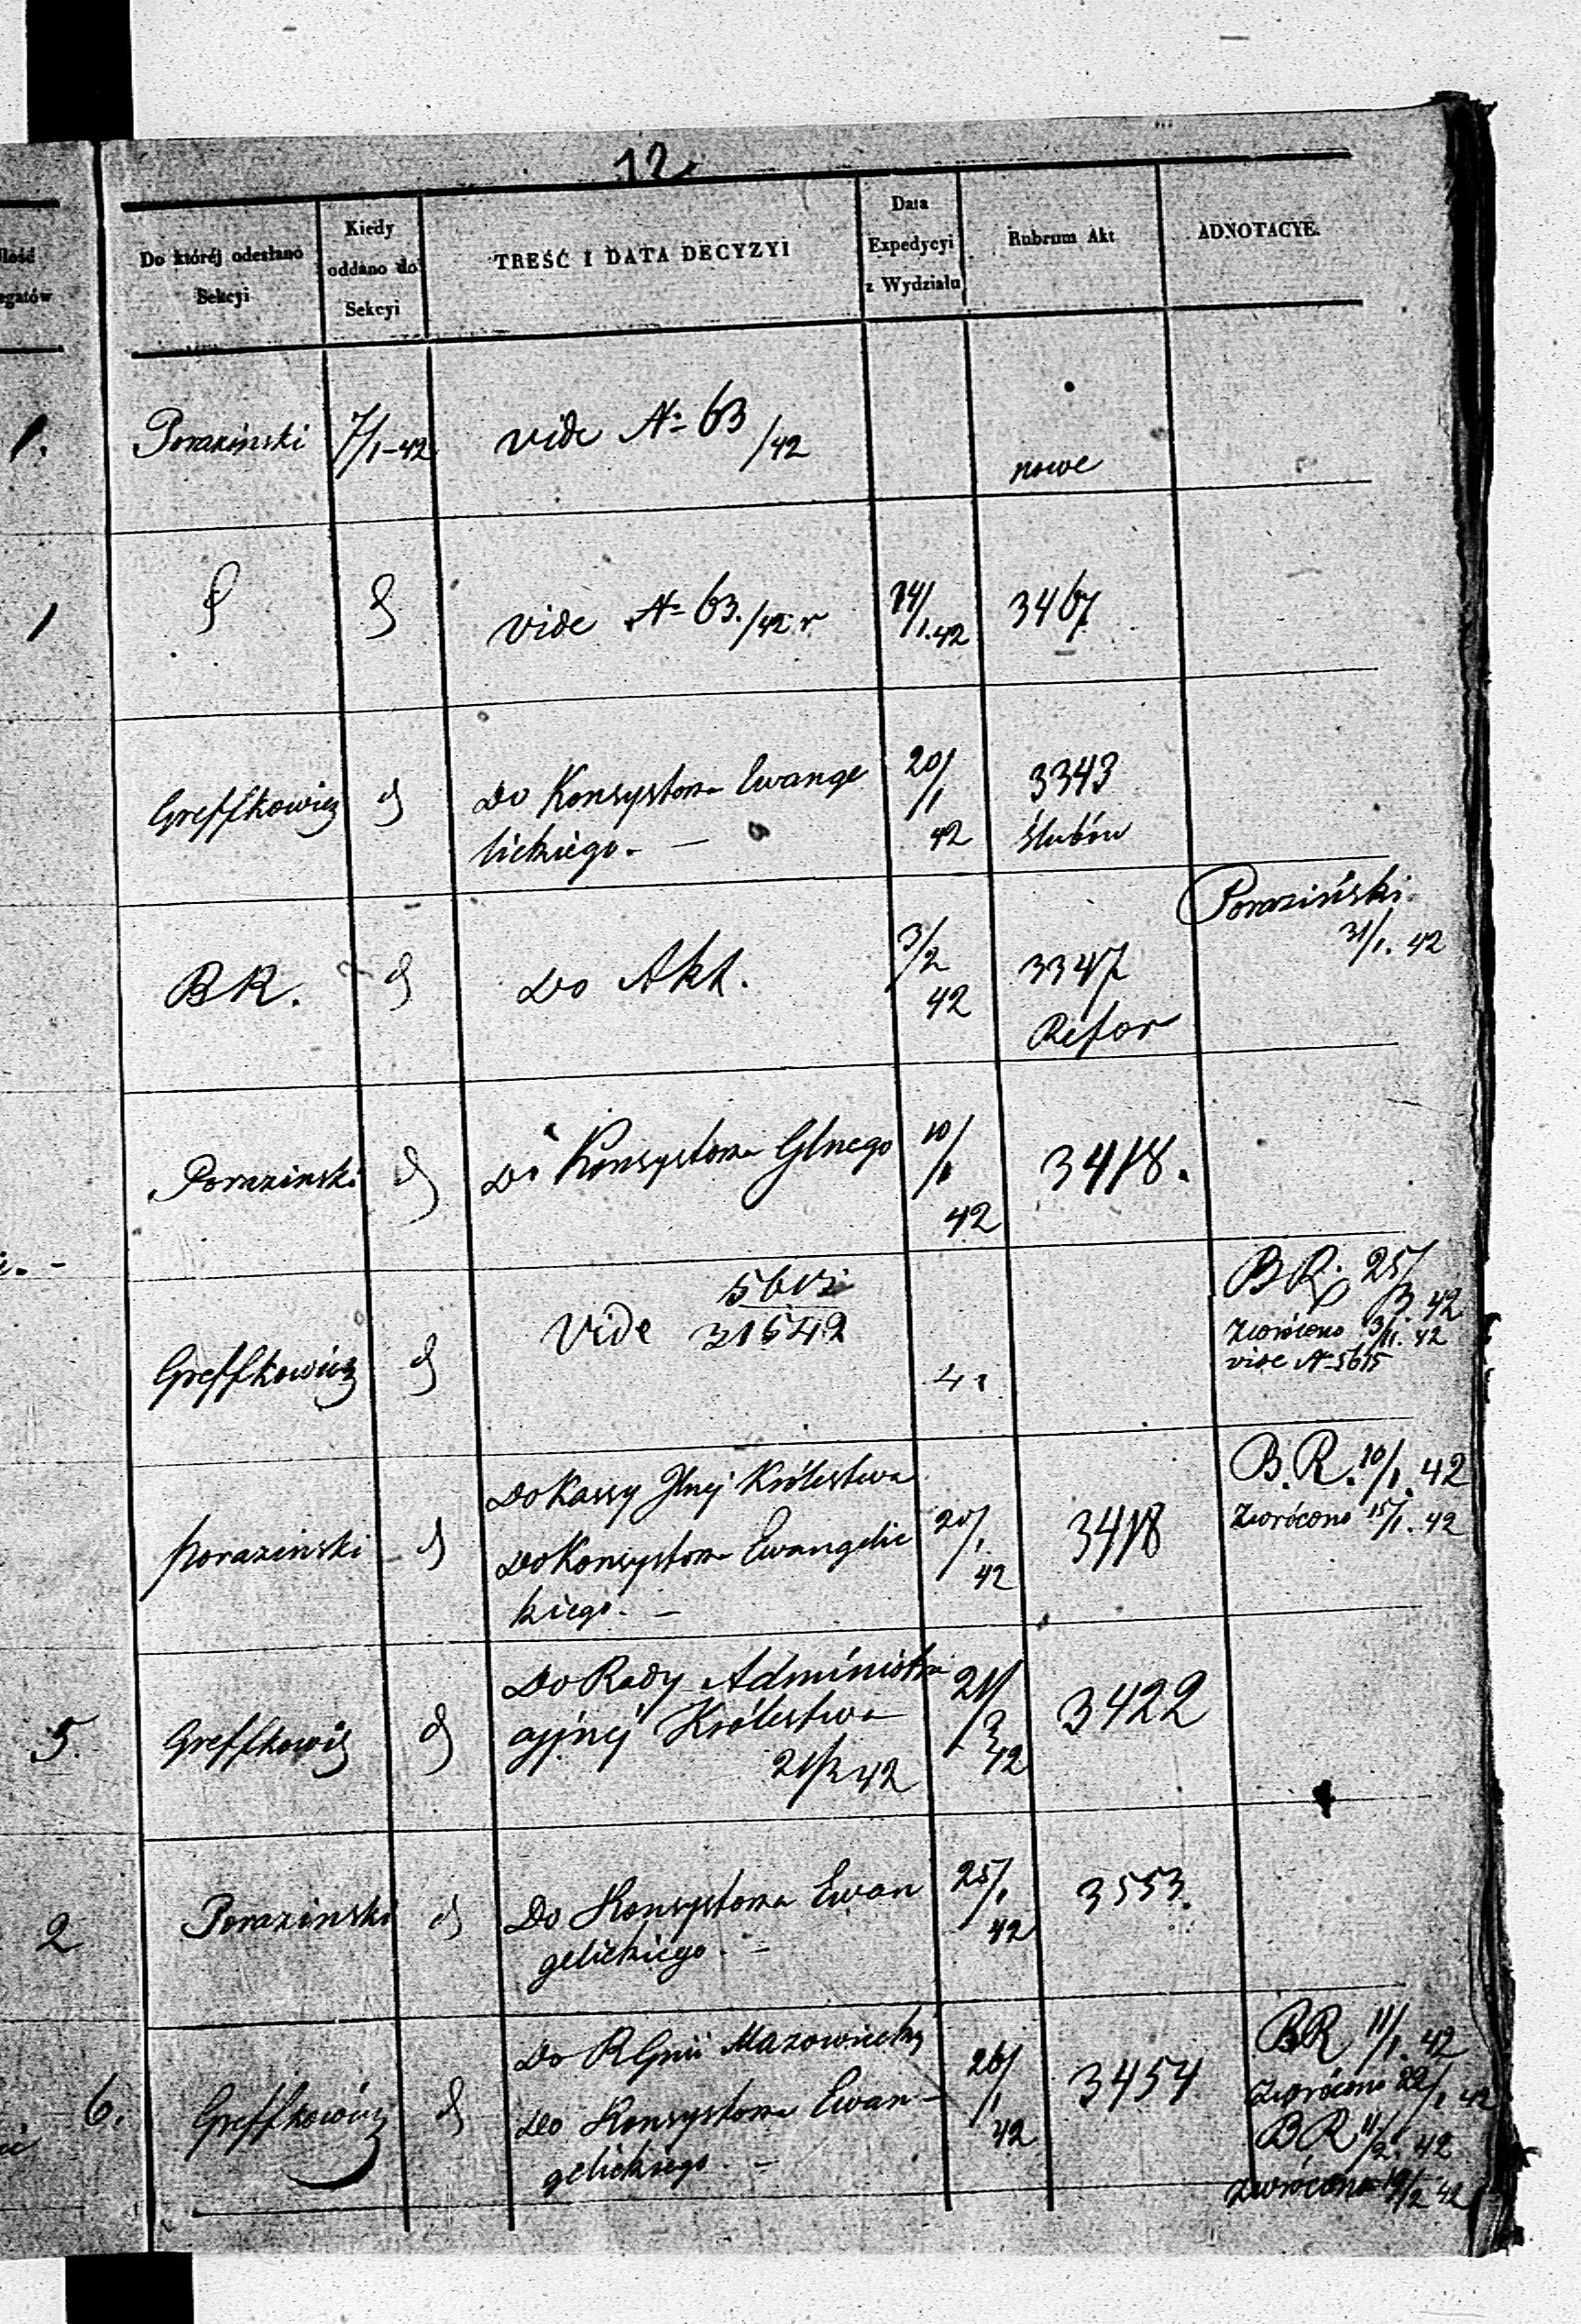 12.
Do któréj odesłano
Sekcyi
Kiedy
oddano do
Sekcyi
TREŚĆ I DATA DECYZYI
Data
Expedycyi
z Wydziału
Rubrum Akt
ADNOTACYE.
1.
Poraziński
7/1-42
vide № 63
/42
nowe
1
vide № 63./42 r
14/1.42
3467
Greffkowicz
do Konsystorza Ewange
lickiego. —
20/1
42
3343
Ślubów
BR.
do Akt.
3/2
42
3347
Refor
Poraziński
31/1. 42
Porazinski
Do Konsystorza Glnego
10/1
42
3418.
Greffkowicz
Vide 5615
31542
BR. 25/3 42
Zwrócono 3/11. 42
vide № 5615
Porazinski
Do Kassy Glnej Królestwa
Do Konsystorza Ewangelic
kiego. —
20/1
42
3418
B.R. 10/1. 42
Zwrócono 15/1. 42
5.
Greffkowicz
Do Rady Administra
cyjnéj Królestwa
21/2 42
21/2
42
3422
2
Porazinski
Do Konsystorza Ewan
gelickiego. —
25/1
42
3553.
6.
Greffkowicz
Do RGnii Mazowieckiej
Do Konsystorza Ewan-
gelickiego. —
26/1
42
3454
BR 11/1. 42
Zwrócono 22/1 42
BR 11/2. 42
zwrócono 19/2 42